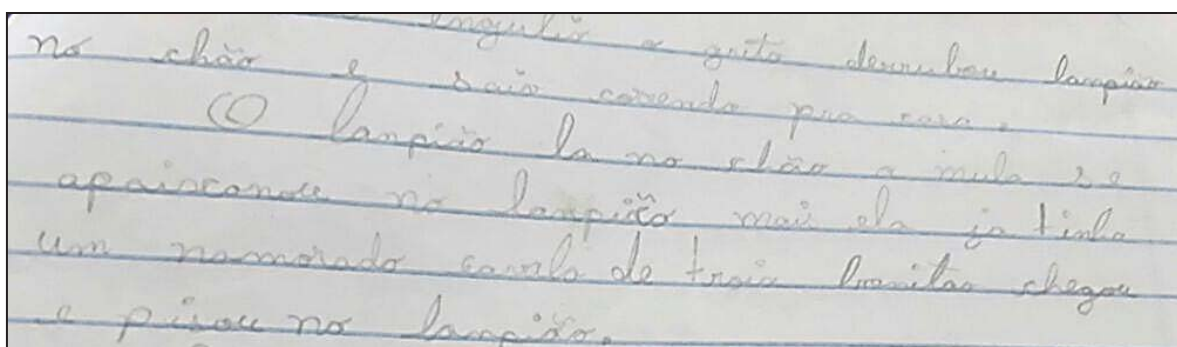 engulir o grito derrubou lampião
no chão e saio correndo pra casa.
O lampião la no chão a mula se
apaixonou no lampião mais ela ja tinha
um namorado cavalo de troia bonitão chegou
e pisou no lampião.